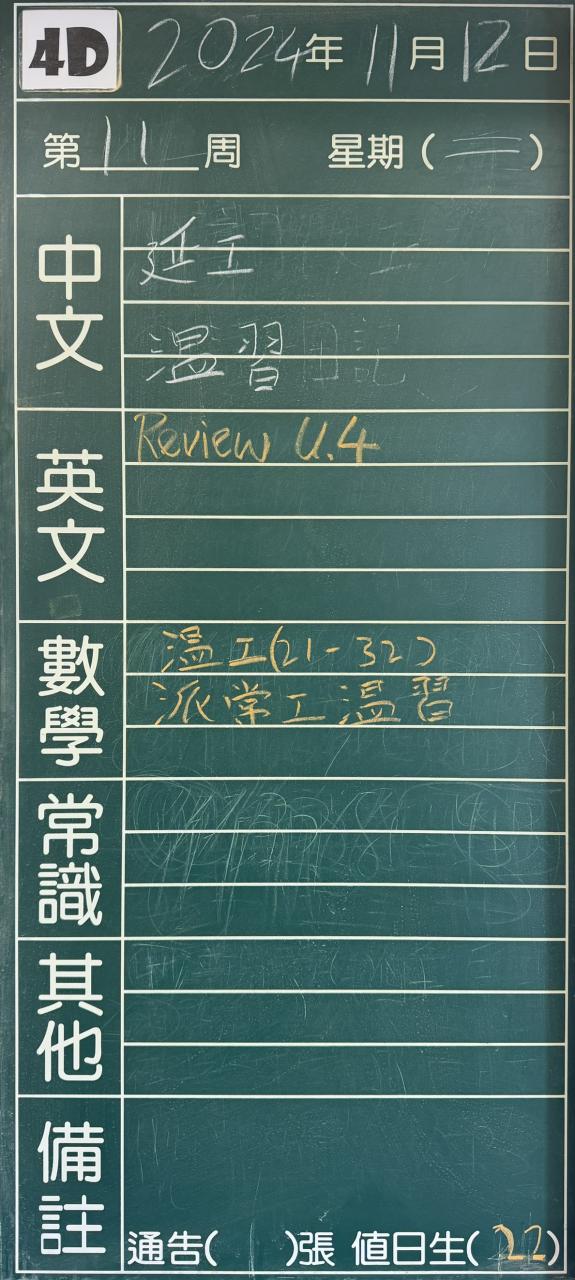 4D 2024年11月12日
第11周 星期(二)
中文
延工
溫習
英文
Review U.4
數學
溫工(21-32)
派常工溫習
常識
其他
備註
通告( )張 值日生(22)